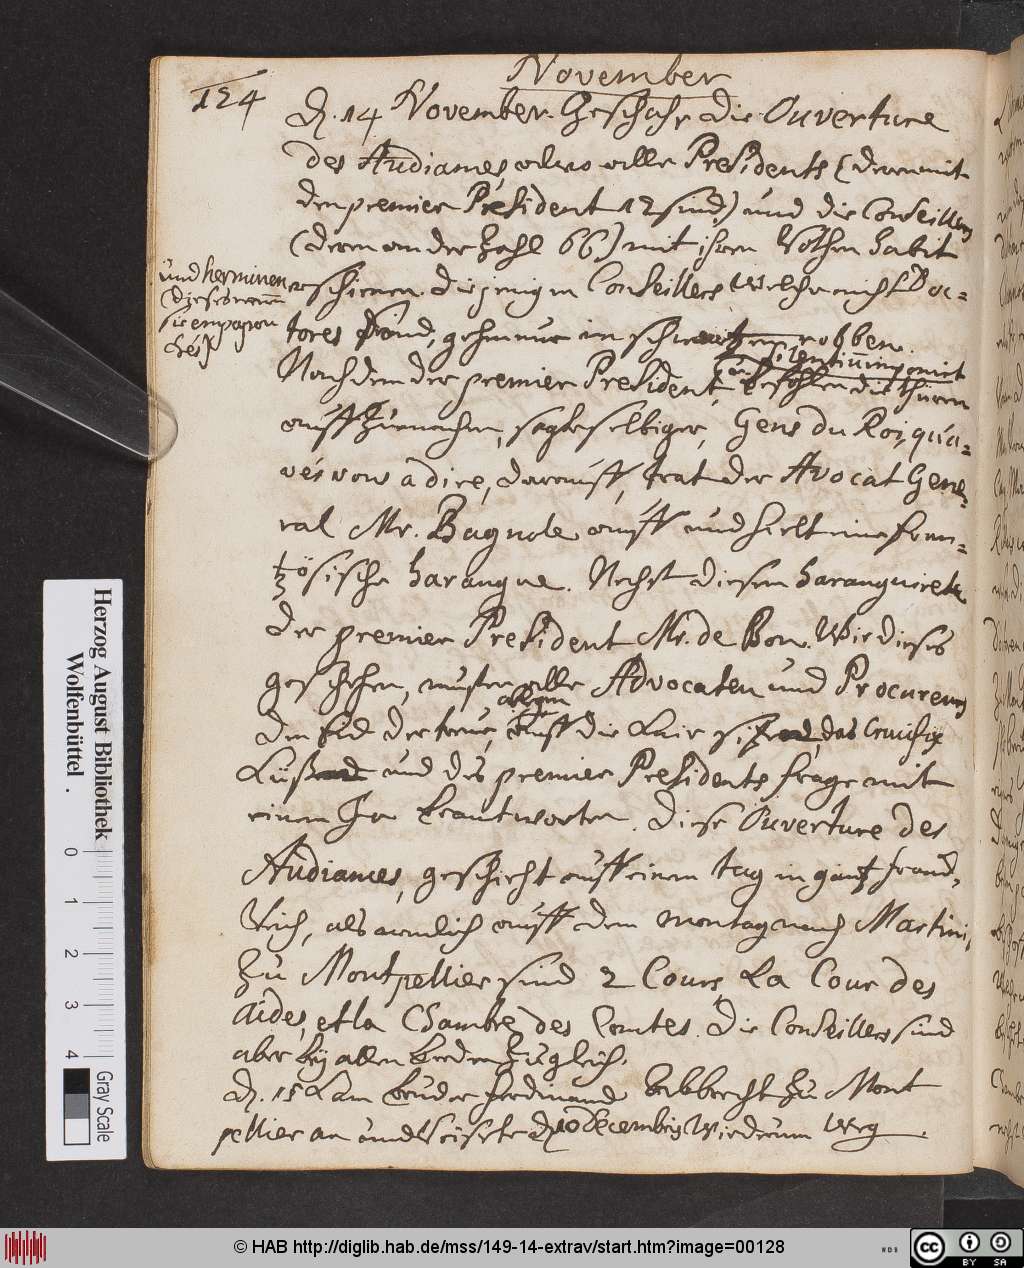 November
124
D. 14 November. Geschahe die Ouverture
des Audiances wo alle Presidents (deren mit
den premier President 12 sind) und die Conseillers
(deren an der Zahl 66) mit ihren Rothen habit
und herminen
(diese nennen
sie enparon
chés)
erschienen. diejenigen Conseillers welche nicht Doc-
tores sind, gehen nur in schwartzen robben.
Nach dem der premier President, befohlen die thüren
auff zu machen, sagte selbiger, Gens du Roi, qu'a-
vés vous a dire, darauff, trat der Avocat Gene-
ral Mr. Bagnole auff und hielt eine fran-
tzösische harangue. Nechst diesem haranguirete
der premier President Mr. de Bon. Wie dieses
geschehen, musten alle Advocaten und Procureurs
den Eid der treue, auff die Knie sitzend, das Crucifix
allein
Küßend und des premier Presidents frage mit
einem Ja beantworten. Diese Ouverture des
Audiances, geschieht auff einem tag in gantz franck-
reich, als nemlich auff dem montag nach Martini,
Zu Montpellier sind 2 Cours La Cour des
Aides, et la Chambre des Comtes. Die Conseillers sind
aber bey allen beeden zugleich.
D. 15 Kam bruder Ferdinand Albbrecht zu Mont
pellier an und reisete d. 10 Decembris wiederum weg.
Herzog August Bibliothek
Wolfenbüttel.
0 1 2 3 4
Gray Scale
© HAB http://diglib.hab.de/mss/149-14-extrav/start.htm?image=00128
WDB
cc
BY SA